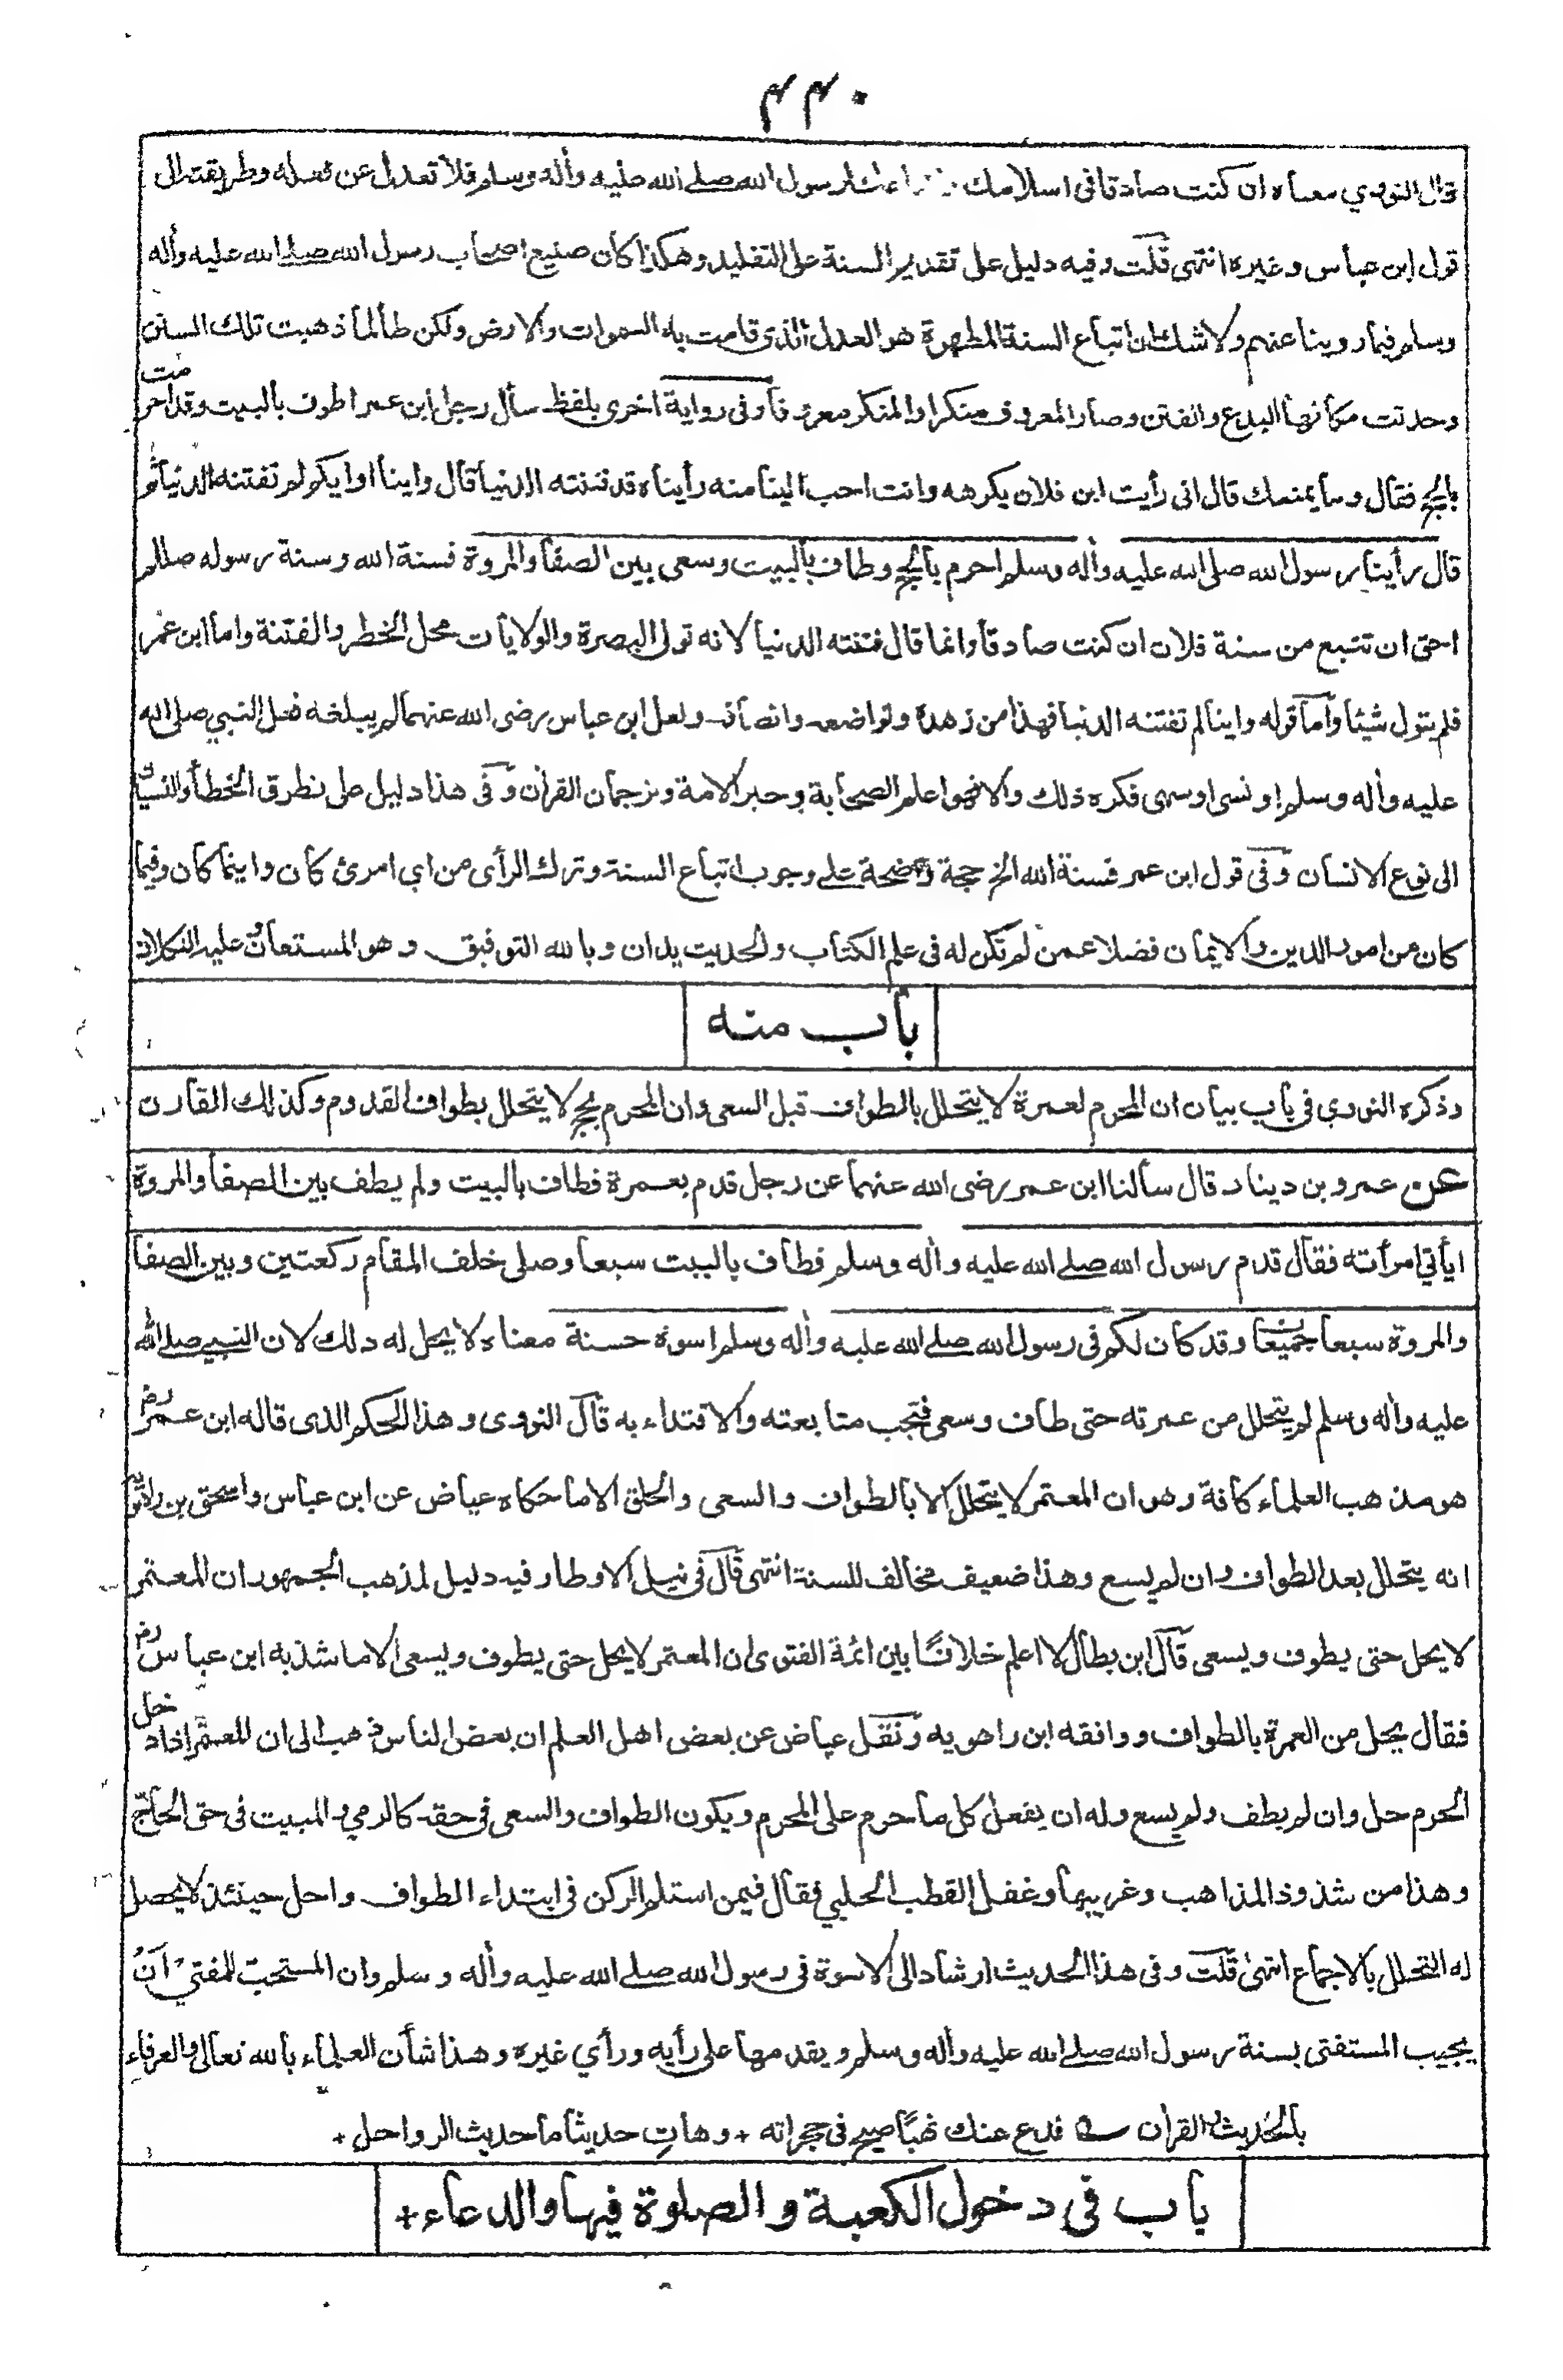 ٤٤٠
قال النووي معناه ان كنت صادقا في اسلامك لرسول الله صلى الله عليه وأله وسلم فلا تعدل عن فعله وطريقته الى
قول ابن عباس وغيره انتهى قلت وفيه دليل على تقدير السنة على التقليد وهكذا كان صنيع اصحاب رسول الله صلى الله عليه وأله
وسلم فيما روينا عنهم ولا شك ان اتباع السنة المطهرة هو العدل الذى قامت به السموات والارض ولكن طالما ذهبت تلك السنن
وحدثت مكانها البدع والفتن وصار المعروف منكرا والمنكر معروفا وفى رواية اخرى بلفظ سأل رجل ابن عمر اطوف بالبيت وقد احرمت
بالحج فقال وما يمنعك قال انى رأيت ابن فلان يكرهه وانت احب الينا منه رأيناه قد فتنته الدنيا قال واينا او ايكم لم تفتنه الدنيا ثم
قال رأينا رسول الله صلى الله عليه وأله وسلم احرم بالحج وطاف بالبيت وسعى بين الصفا والمروة فسنة الله وسنة رسوله صللم
احق ان تتبع من سنة فلان ان كنت صادقا وانما قال فتنته الدنيا لانه تولى البصرة والولايات محل الخطر والفتنة واما ابن عمر
فلم يتول شيئا واما قوله واينا لم تفتنه الدنيا فهذا من زهده وتواضعه وانصافه ولعل ابن عباس رضى الله عنهما لم يبلغه فعل النبي صلى الله
عليه وأله وسلم او نسى او سهى فكره ذلك والا فهو اعلم الصحابة وحبر الامة وترجمان القرأن وفى هذا دليل على تطرق الخطأ والنسيان
الى نوع الانسان وفى قول ابن عمر فسنة الله الخ حجة واضحة على وجوب اتباع السنة وترك الرأى من اى امرئ كان واينما كان وفيما
كان من امور الدين والايمان فضلا عمن لم تكن له فى علم الكتاب والحديث يدان وبالله التوفيق وهو المستعان وعليه التكلان
باب منه
وذكره النووي فى باب بيان ان المحرم لعمرة لا يتحلل بالطواف قبل السعى وان المحرم بحج لا يتحلل بطواف القدوم وكذلك القارن
عن عمرو بن دينار قال سألنا ابن عمر رضى الله عنهما عن رجل قدم بعمرة فطاف بالبيت ولم يطف بين الصفا والمروة
ايأتى امرأته فقال قدم رسول الله صلى الله عليه وأله وسلم فطاف بالبيت سبعا وصلى خلف المقام ركعتين وبين الصفا
والمروة سبعا وقد كان لكم فى رسول الله صلى الله عليه وأله وسلم اسوة حسنة معناه لا يحل له ذلك لان النبي صلى الله
عليه وأله وسلم لم يتحلل من عمرته حتى طاف وسعى فتجب متابعته والاقتداء به قال النووى وهذا الحكم الذى قاله ابن عمر رض
هو مذهب العلماء كافة وهو ان المعتمر لا يتحلل الا بالطواف والسعى والحلق الا ما حكاه عياض عن ابن عباس واسحق بن راهويه
انه يتحلل بعد الطواف وان لم يسع وهذا ضعيف مخالف للسنة انتهى قال فى نيل الاوطار وفيه دليل لمذهب الجمهور ان المعتمر
لا يحل حتى يطوف ويسعى قال ابن بطال لا اعلم خلافا بين ائمة الفتوى ان المعتمر لا يحل حتى يطوف ويسعى الا ما شذ به ابن عباس رض
فقال يحل من العمرة بالطواف ووافقه ابن راهويه ونقل عياض عن بعض اهل العلم ان بعض الناس ذهب الى ان المعتمر اذا دخل
الحرم حل وان لم يطف ولم يسع وله ان يفعل كل ما حرم على المحرم ويكون الطواف والسعى فى حقه كالرمي والمبيت فى حق الحاج
وهذا من شذوذ المذاهب وغريبها وغفل القطب الحلبي فقال فيمن استلم الركن فى ابتداء الطواف واحل حينئذ لا يحصل
له التحلل بالاجماع انتهى قلت وفى هذا الحديث ارشاد الى الاسوة فى رسول الله صلى الله عليه وأله وسلم وان المستحب للمفتي ان
يجيب المستفتى بسنة رسول الله صلى الله عليه وأله وسلم ويقدمها على رأيه ورأي غيره وهذا شأن العلماء بالله تعالى والعرفاء
بالحديث والقرأن فدع عنك نهبا صيح فى حجراته + وهات حديثا ما حديث الرواحل +
باب فى دخول الكعبة والصلوة فيها والدعاء +